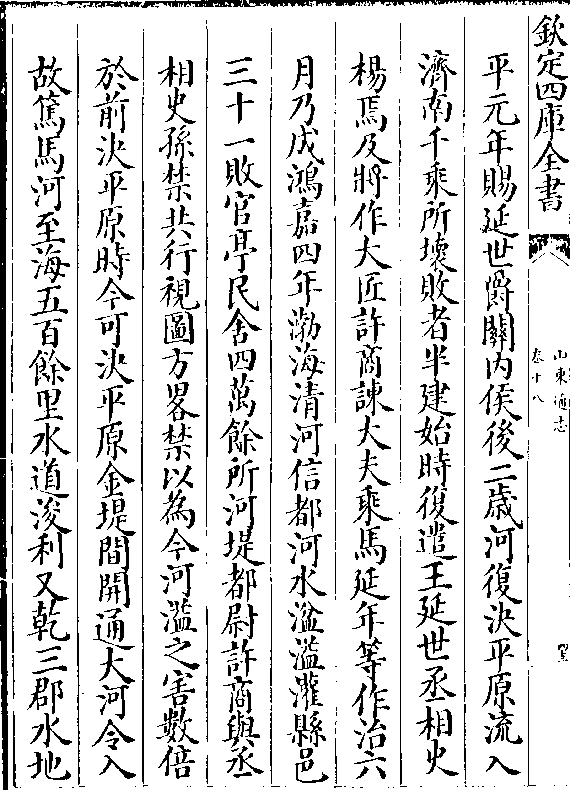 欽定四庫全書
山東通志
卷十八
平元年賜延世爵關内侯後二歲河復決平原流入
濟南千乘所壞敗者半建始時復遣王延世丞相史
楊焉及將作大匠許商諫大夫乘馬延年等作治六
月乃成鴻嘉四年渤海清河信都河水湓溢灌縣邑
三十一敗官亭民舍四萬餘所河堤都尉許商與丞
相史孫禁共行視圖方畧禁以為今河溢之害數倍
於前決平原時今可決平原金堤間開通大河令入
故篤馬河至海五百餘里水道浚利又乾三郡水地